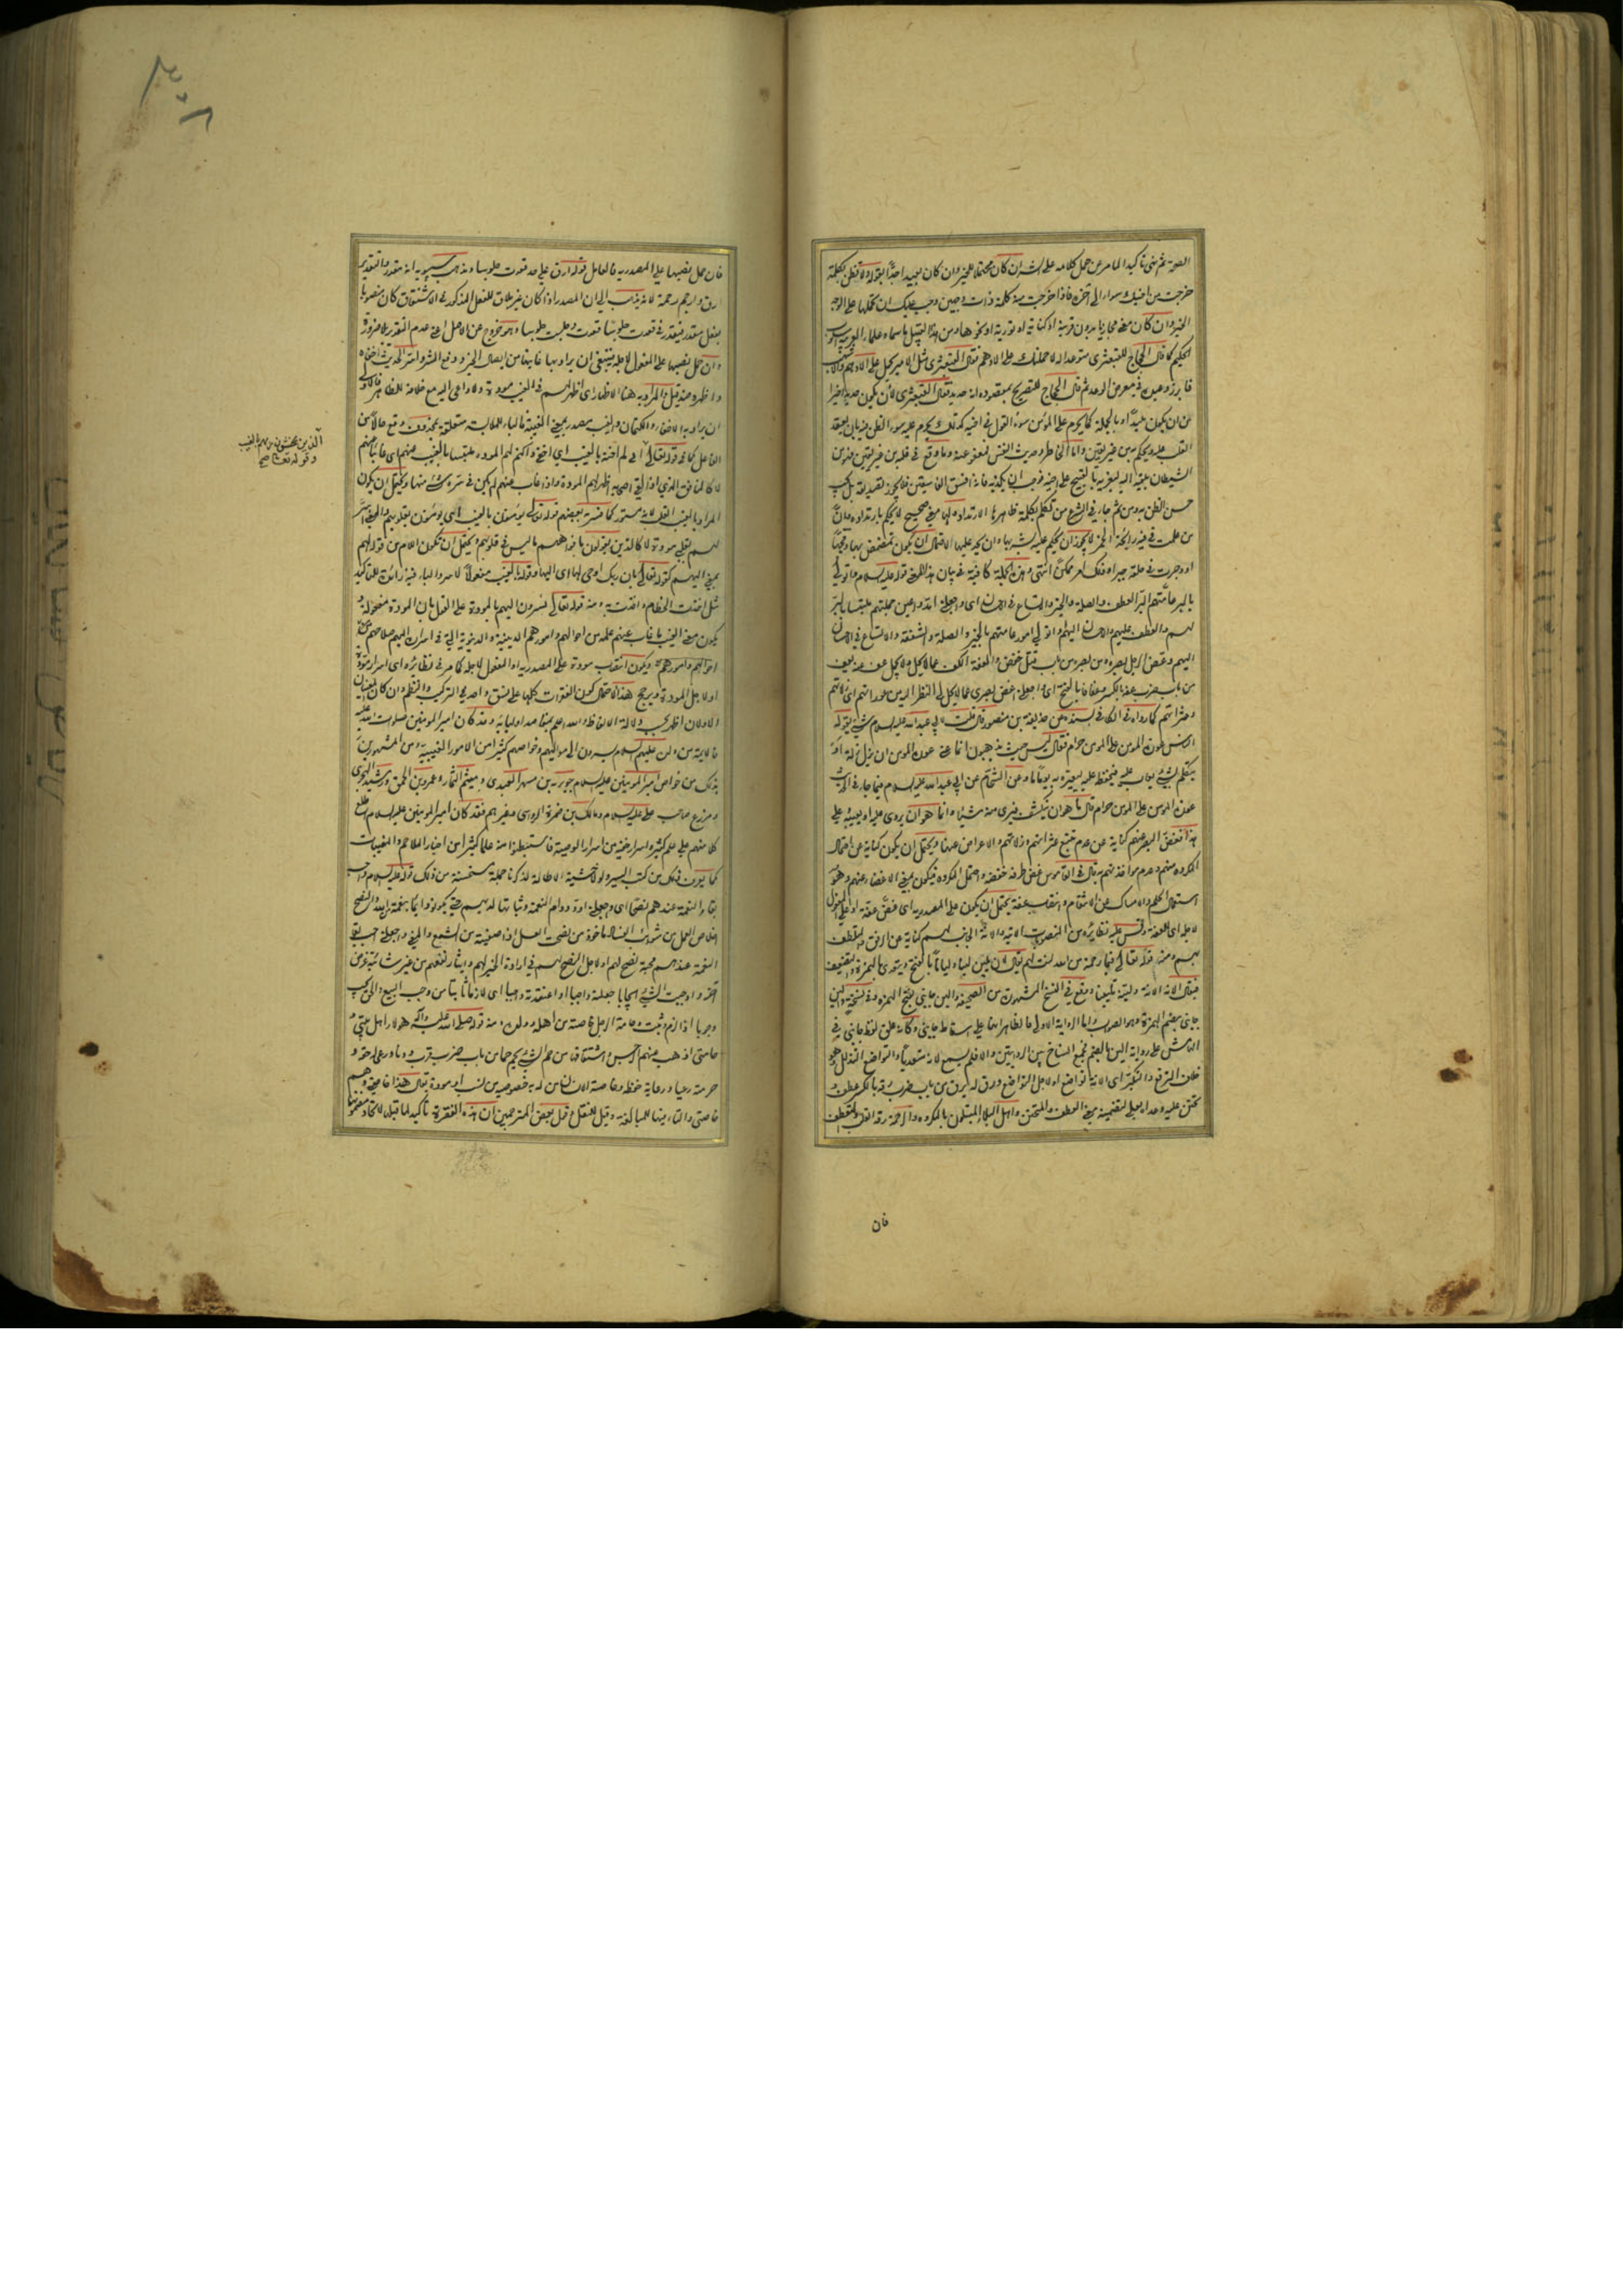 الصورة ثم بنى تاكيد المامر عن حمل كلامه على الشر ان كان محتملا للخير وان كان بعيدا جدا بقوله ولا تظن بكلمة
خرجت من اخيك سوءا الى آخره فاذا خرجت منه كلمة ذات وجهين وجب عليك ان تحملها على الوجه
الخير وان كان معنى مجازيا بدون قرينة او كناية او تورية او نحوها ومن هذا القبيل ما سماه علماء العربية اسلوب
الحكيم كما قال الحجاج للقبعثرى متوعدا له لاحملنك على الادهم فقال القبعثرى مثل الامير يحمل على الادهم والاشهب
فابرز وعيده في معرض الوعد ثم قال الحجاج للتصريح بمقصوده انه حديد فقال القبعثرى لان يكون حديدا خير
من ان يكون بليدا وبالجملة كما يحرم على المؤمن سوء القول في اخيه كذلك يحرم عليه سوء الظن فيه بان يعقد
القلب عليه ويحكم به من غير يقين واما الخاطر وحديث النفس فمعفو عنه وما وقع في قلبه من غير يقين فمن
الشيطان يلقيه اليه ليغريه بالقبيح على اخيه فوجب ان يكذبه فانه افسق الفاسقين فلا يجوز تصديقه بل يجب
حسن الظن به ومن ثم جاء في الشرع من تكلم بكلمة ظاهرها الارتداد ولها معنى صحيح لا يحكم بارتداده وان
من علمت في فيه رائحة الخمر لا يجوز ان يحكم عليه بشربها وان يحد عليها لاحتمال ان يكون تمضمض بها ومجها
او وجرت في حلقه جبرا وذلك امر ممكن انتهى وهذه الجملة كافية في بيان هذا المعنى قوله عليه السلام واتولى
بالبر عامتهم البر العطف والصلة والخير والاتساع في الاحسان اى واجعلنى اللهم
لهم والعطف عليهم والاحسان اليهم او اتولى امور عامتهم بالخير والصلة والشفقة والاتساع في الاحسان
اليهم وغض الرجل بصره ومن بصره من باب قتل خفض والعفة الكف عما لا يحل ولا يجمل عف عنه يعف
من باب ضرب عفة بالكسر وعفافا بالفتح اى واجعلنى اغض بصرى عما لا يحل لى النظر اليه من عوراتهم
وعثراتهم كما رواه في الكافى بسنده عن حذيفة بن منصور قال قلت لابى عبد الله عليه السلام شئ يقوله
الناس عورة المؤمن على المؤمن حرام فقال ليس حيث يذهبون انما عنى عورة المؤمن ان يزل زلة او
يتكلم بشئ يعاب عليه فيحفظ عليه ليعيره به يوما ما وعن الشحام عن ابى عبد الله عليه السلام فيما جاء في الحديث
عورة المؤمن على المؤمن حرام قال ما هو ان ينكشف فيرى منه شيئا وانما هو ان يروى عليه او يعيبه على
هذا فغض البصر عنهم كناية عن عدم تتبع عثراتهم وزلاتهم والاعراض عنها ويحتمل ان يكون كناية عن احتمال
المكروه منهم وعدم مؤاخذتهم به قال في القاموس غض طرفه خفضه واحتمل المكروه فيكون بمعنى الاغضاء عنهم وهو
استعمال الحلم والامساك عن الانتقام وانتصاب عفة يحتمل ان يكون على المصدرية اى غض عفة او على المفعول
لاجله اى للعفة وقس عليه نظائره من المنصوبات الاتية والانة الجانب لهم كناية عن الرفق والتعطف
بهم ومنه قوله تعالى فبما رحمة من الله لنت لهم يقال لان يلين لينا وليانا بالفتح ويتعدى بالهمزة والتضعيف
فيقال الانه الانة ولينه تليينا ووقع في النسخ المشهورة من الصحيفة والين جانبى بفتح الهمزة وفى نسخة والين
جانبى بضم الهمزة وهو الصواب واما الرواية الاولى فالظاهر انها على اسقاط جانبى وكانه علق لفظ جانبى في
الهامش على رواية الين بالضم فجمع النساخ بين الروايتين والا فلم يسمع لان متعديا والتواضع التذلل وهو
خلاف الترفع والتكبر اى الانة تواضع او لاجل التواضع ورق له يرق من باب ضرب رقة بالكسر عطف و
تحنن عليه وعداه بعلى لتضمينه معنى العطف والتحنن واهل البلاء المبتلون بالمكروه والرحمة رقة القلب والتعطف
فان
فان حمل نصبها على المصدرية فالعامل قوله ارق على حد قعدت جلوسا ومذهب سيبويه انه مقدر والتقدير
ارق وارحم رحمة لانه يذهب الى ان المصدر اذا كان غير ملاق للفعل المذكور في الاشتقاق كان منصوبا
بفعل مقدر فيقدر في قعدت جلوسا قعدت وجلست جلوسا وهو خروج عن الاصل اعنى عدم التقدير بلا ضرورة
وان حمل نصبها على المفعول لاجله فينبغى ان يراد بها غايتها من ايصال الخير ودفع الشر واسر الحديث اخفاه
واظهره ضد قيل والمراد به هنا الاظهار اى اظهر لهم في الغيب مودة ولا داعى اليه مع خلافه للظاهر فالاولى
ان يراد به الاخفاء والكتمان والغيب مصدر بمعنى الغيبة فالباء للملابسة متعلقة بمحذوف وقع حالا من
الفاعل كما في قوله تعالى انى لم اخنه بالغيب اى اخفى واكتم لهم المودة ملتبسا بالغيب منهم اى غائبا عنهم
لا كالمنافق الذى اذا لقى اصحابه اظهر لهم المودة واذا غاب عنهم لم يكن في سره شئ منها ويحتمل ان يكون
المراد بالغيب القلب لانه مستور كما فسره بعضهم قوله تعالى يؤمنون بالغيب اى يؤمنون بقلوبهم والمعنى اسر
لهم بقلبى مودة لا كالذين يقولون بافواههم ما ليس في قلوبهم ويحتمل ان تكون اللام من قوله لهم
بمعنى اليهم كقوله تعالى بان ربك اوحى لها اى اليها وقوله بالغيب مفعولا لاسر والباء فيه زائدة للتاكيد
مثل اخذت الخطام واخذت به ومنه قوله تعالى تسرون اليهم بالمودة على القول بان المودة مفعوله و
يكون معنى الغيب ما غاب عنهم علمه من احوالهم وامورهم الدينية والدنيوية التى في اسرارها اليهم صلاحهم
احوالهم وامورهم ويكون انتصاب مودة على المصدرية او المفعول لاجله كما مر في نظائره اى اسرار مودة
او لاجل المودة ويرجح هذا الاحتمال كون الفقرات كلها على نسق واحد في التركيب والنظم وان كان المعنيان
الاولان اظهر بحسب دلالة الالفاظ والله اعلم بمقاصد اوليائه وقد كان امير المؤمنين صلوات الله عليه
فالائمة من ولده عليهم السلام يسرون الى مواليهم وخواصهم كثيرا من الامور الغيبية ومن المشهورين
بذلك من خواص امير المؤمنين عليه السلام جويرية بن مسهر العبدى وميثم التمار وعمرو بن الحمق ورشيد الهجرى
ومزرع صاحب على عليه السلام ومالك بن ضمرة الرواسى وغيرهم فقد كان امير المؤمنين عليه السلام اطلع
كلا منهم على علم كثير واسرار خفية من اسرار الوصية فاستنبطوا منه علما كثيرا من اخبار الملاحم والمغيبات
كما يعرف ذلك من كتب السير ولولا خشية الاطالة لذكرنا جملة مستحسنة من ذلك قوله عليه السلام واحب
بقاء النعمة عندهم نصحا اى واجعلنى اود دوام النعمة وثباتها لديهم حتى يكونوا دائما في نعمة الله والنصح
اخلاص العمل من شوائب الفساد ماخوذ من نصحت العسل اذا صفيته من الشمع والمعنى واجعلنى احب بقاء
النعمة عندهم محبة نصح لهم او لاجل النصح لهم في ارادة الخير لهم وايثار نفعهم من غير شائبة غرض
آخر واوجبت الشئ ايجابا جعلته واجبا او اعتقدته واجبا اى لازما ثابتا من وجب البيع والحق يجب
وجوبا اذا لزم وثبت وحامة الرجل خاصته من اهله وولده ومنه قوله صلى الله عليه وآله هؤلاء اهل بيتى و
حامتى اذهب عنهم الرجس واشتقاقها من حم الشئ يحم حما من باب ضرب قرب ودنا ورعى له حقه و
حرمته رعيا ورعاية حفظه وخاصة الانسان الناس له به خصوصية من نسب او مودة يقال هذا خاصتى وهم
خاصتى والتاء فيها للمبالغة وقيل للنقل وقيل بعض المترجمين ان هذه الفقرة تاكيد لما قبلها لاتحاد مضمونها
الذين يخشون ربهم بالغيب
وقوله تعالى صح